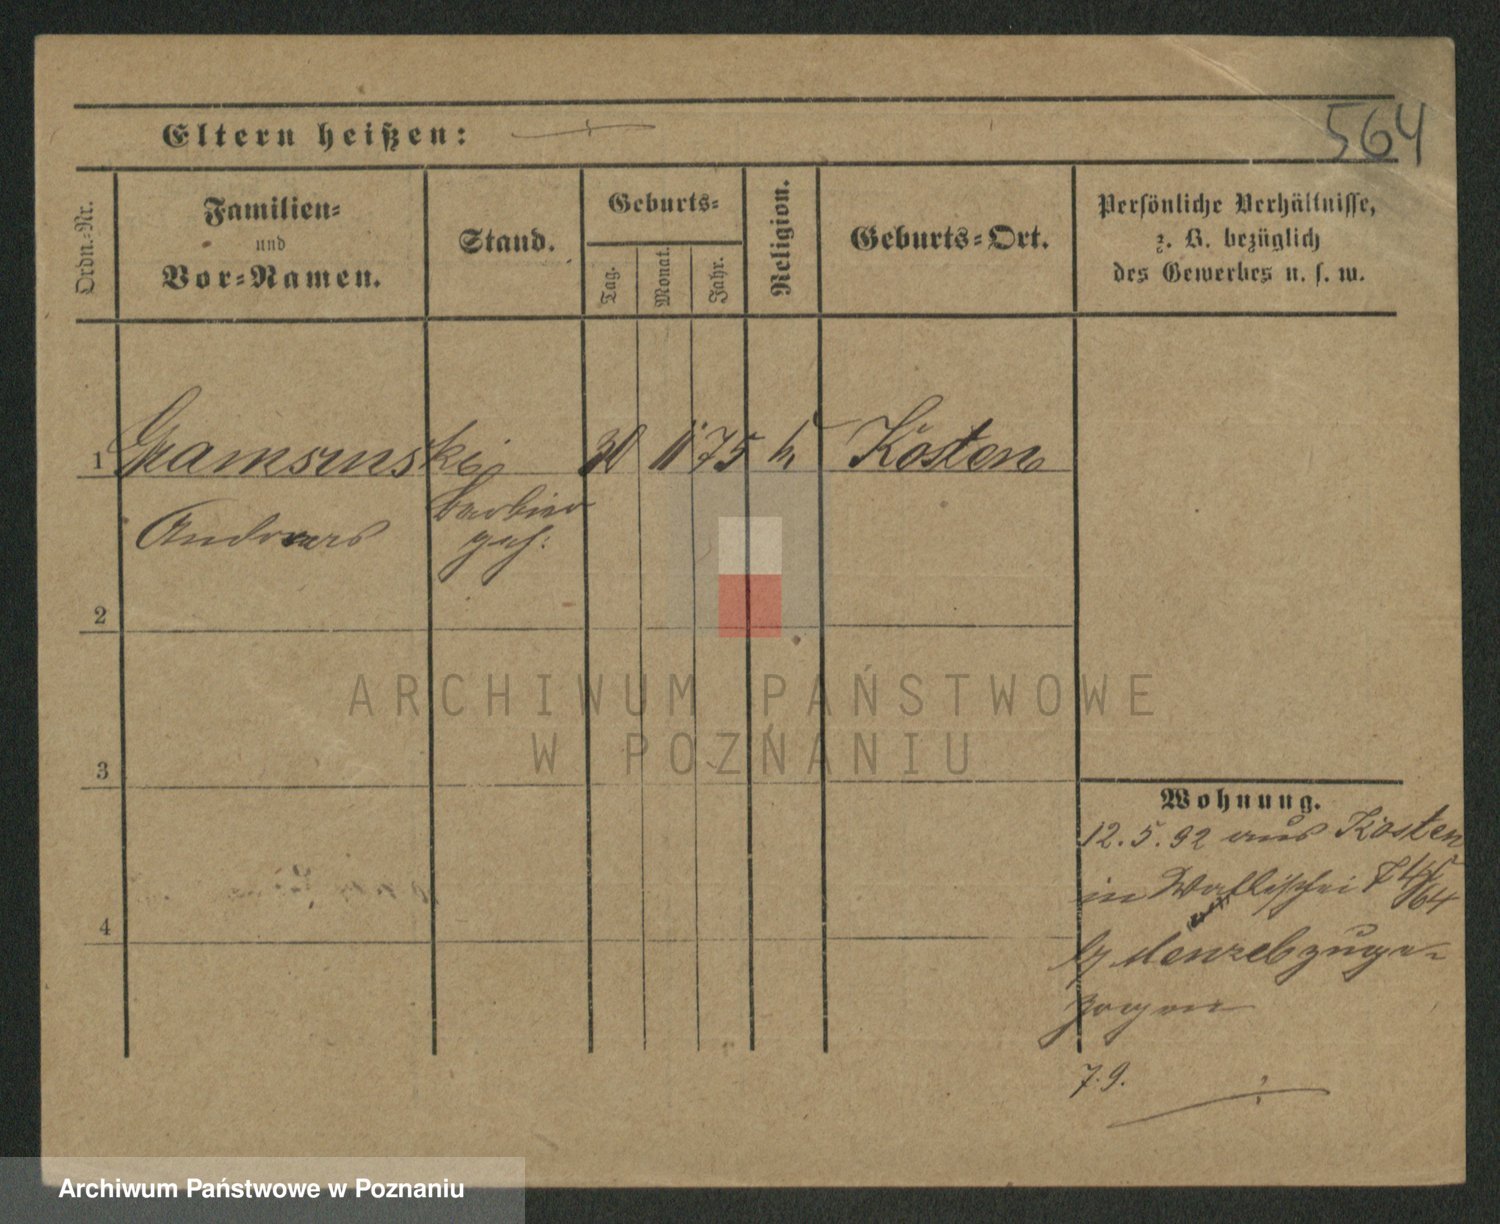 564
Eltern heißen: ÷
Ordn.-Nr.
Familien-
und
Vor-Namen.
Stand.
Geburts-
Tag.
Monat.
Jahr.
Religion.
Geburts-Ort.
Persönliche Verhältnisse,
z. B. bezüglich
des Gewerbes u. s. w.
1 30 11 75 k Kosten
Andreas Barbier
geh:
2
3
4
ARCHIWUM PAŃSTWOWE
W POZNANIU
Wohnung.
12.5.92 aus Kosten
in Wallischei
Menzel zuge-
zogen
7.9. ÷
Archiwum Państwowe w Poznaniu